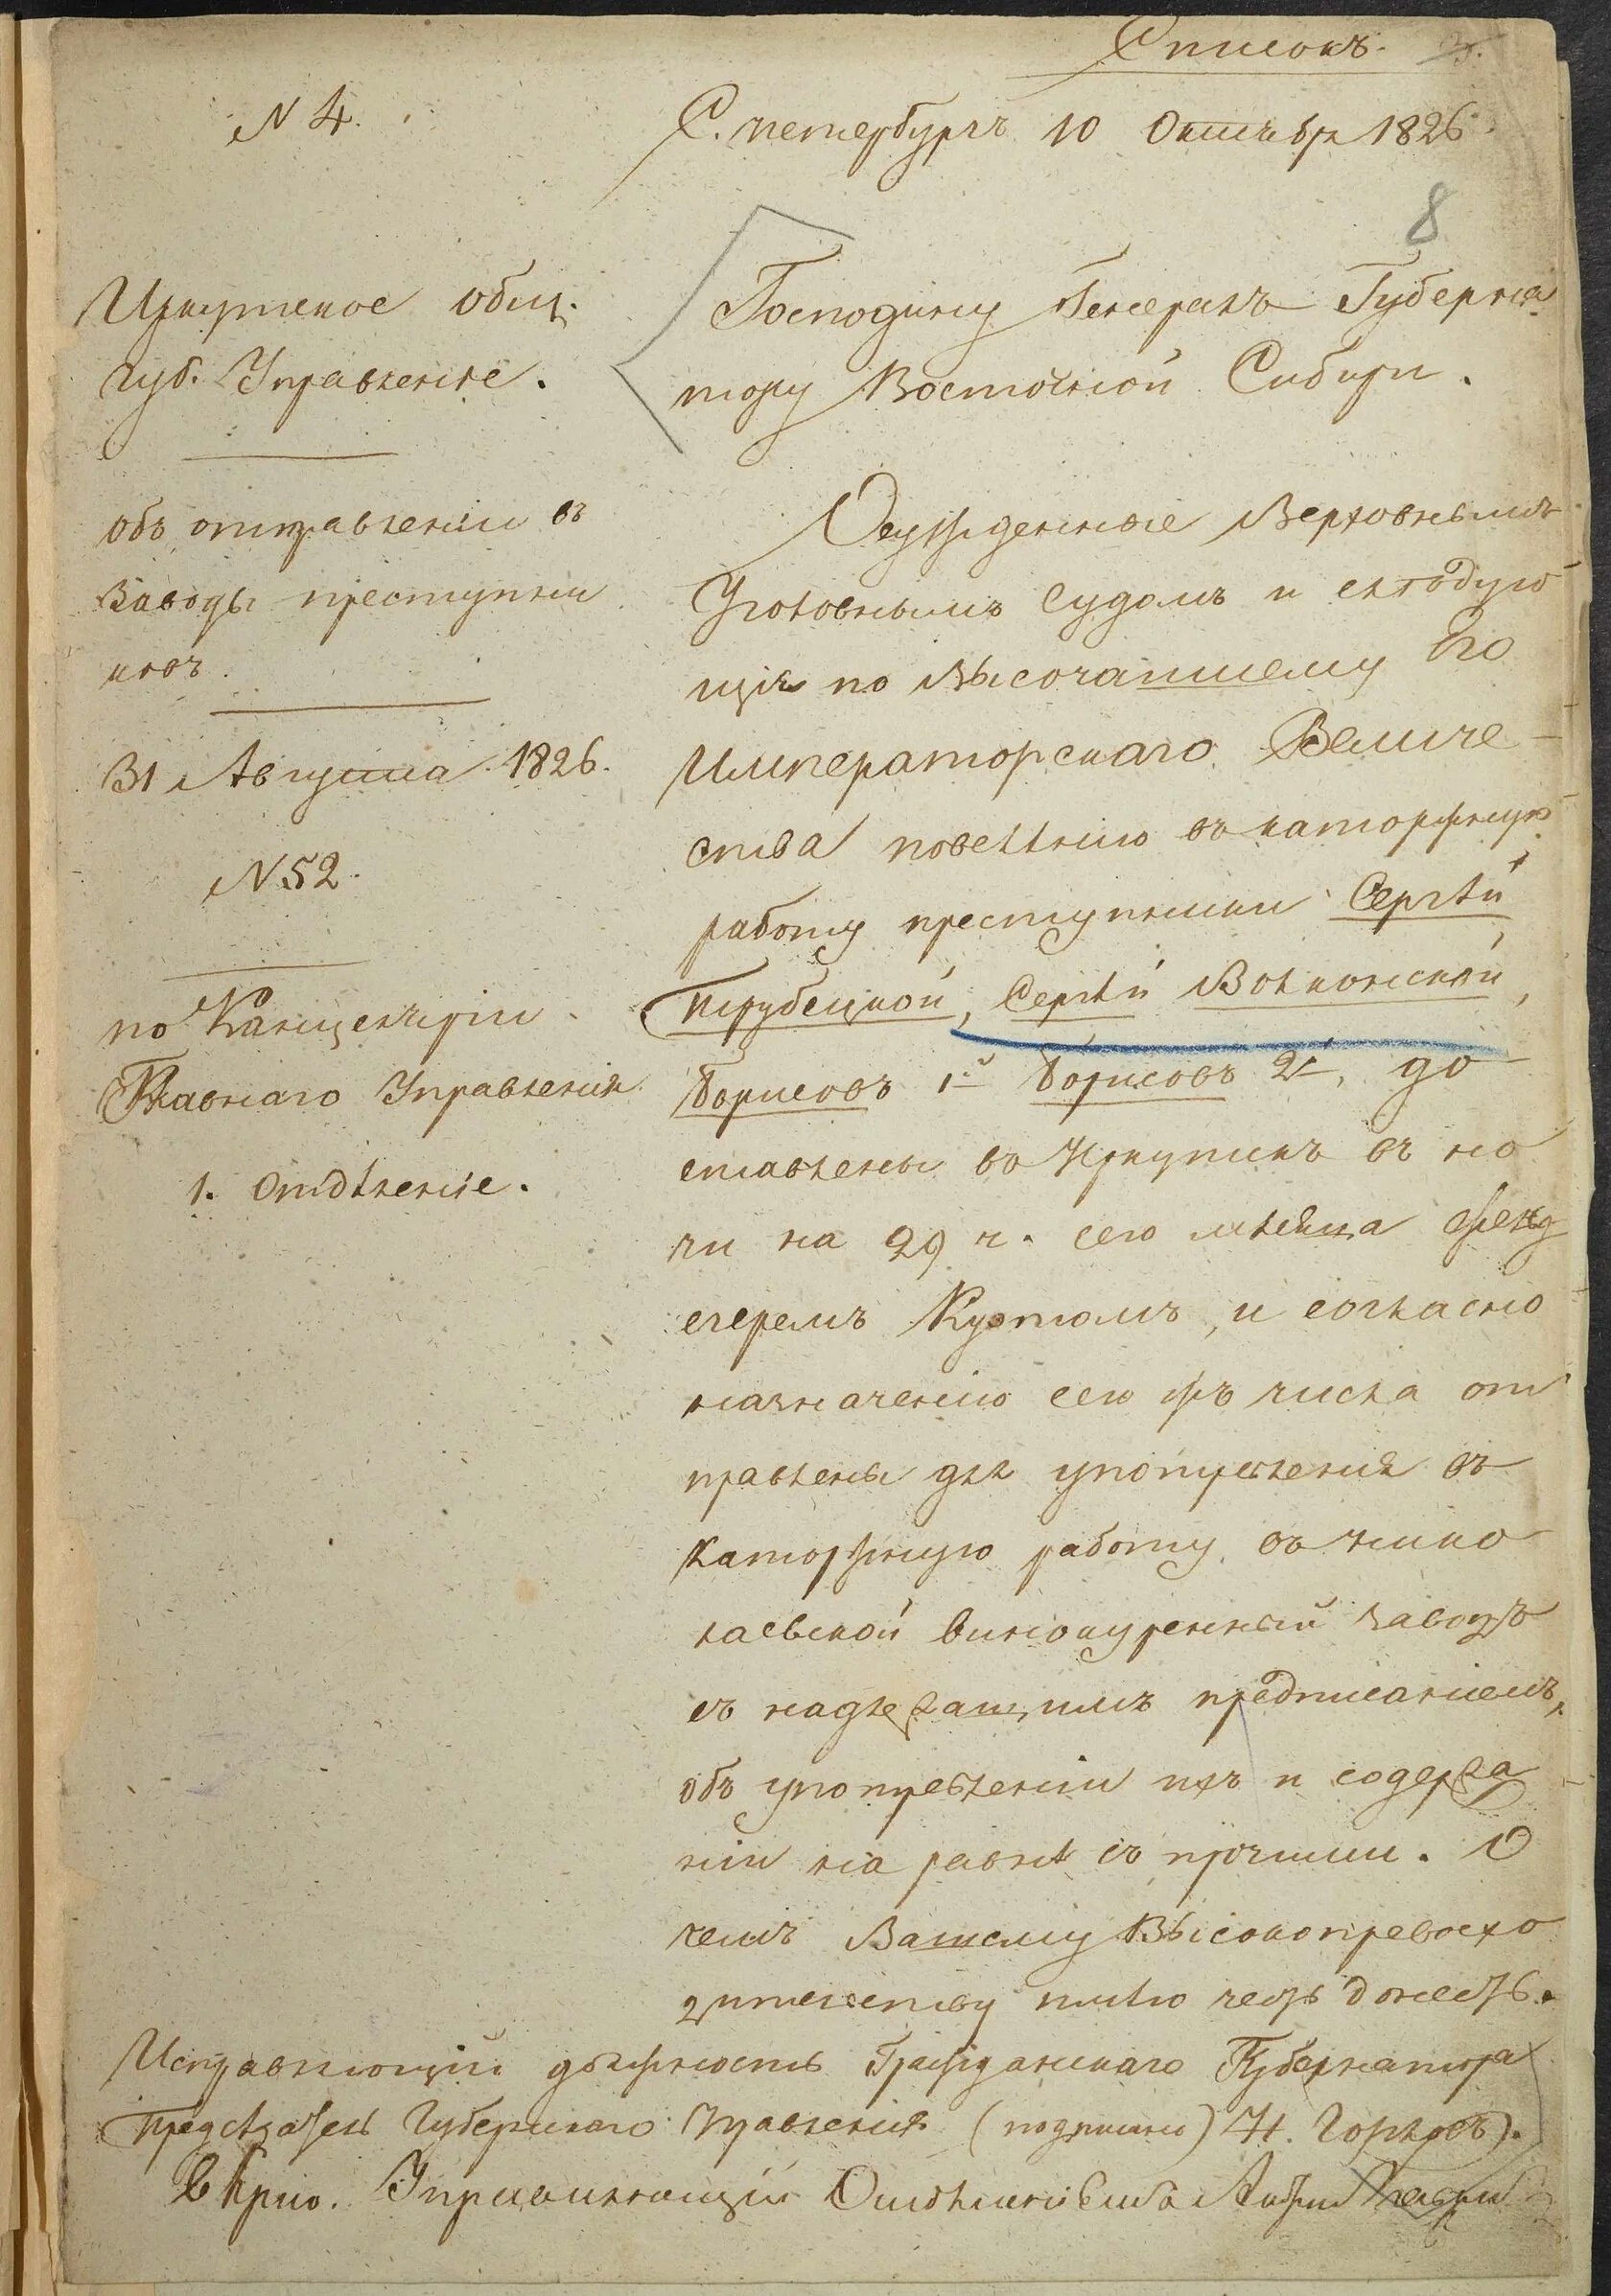 Списокъ.
N 4.
С. петербургъ 10 Октября 1826
8
Иркутское общ.
губ. Управленіе.
объ отправленіи въ
Заводы преступни
ковъ.
31 Августа 1826.
N 52.
по Канцеляріи
Главнаго Управленія
1. Отдѣленіе.
Господину Генералъ Губерна
тору Восточной Сибири.
Осужденные Верховнымъ
Уголовнымъ Судомъ и слѣдую
щіе по Высочайшему Его
Императорскаго Величе-
ства повелѣнію въ каторжную
работу преступники Сергѣй
Трубецкой, Сергѣй Волконской,
Борисовъ 1й Борисовъ 2й, до
ставлены въ Иркутскъ въ но
чи на 29 ч. сего мѣсяца фельд
егеремъ и согласно
назначенію сего жъ числа от
правлены для употребленія въ
Каторжную работу въ Нико
лаевской винокуренный заводъ
съ надлежащимъ предписаніемъ,
объ употребленіи ихъ и содержа
ніи на равнѣ съ прочими. О
чемъ Вашему Высокопревосхо
дительству имѣю честь донесть.
Исправляющій должность Гражданскаго Губернатора
Предсѣдатель Губернскаго Правленія (подписано) Н. Горловъ).
Вѣрно. Управляющій Отдѣленіемъ